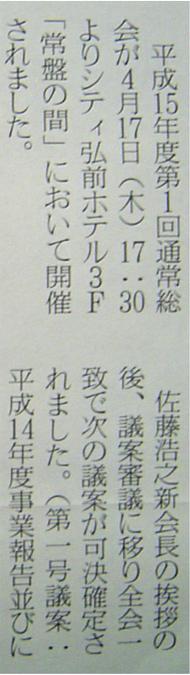 平成15年度第1回通常総
会が4月17日（木）17：30
よりシティ弘前ホテル3F
「常盤の間」において開催
されました。
佐藤浩之新会長の挨拶の
後、議案審議に移り全会一
致で次の議案が可決確定さ
れました。（第一号議案：
平成14年度事業報告並びに